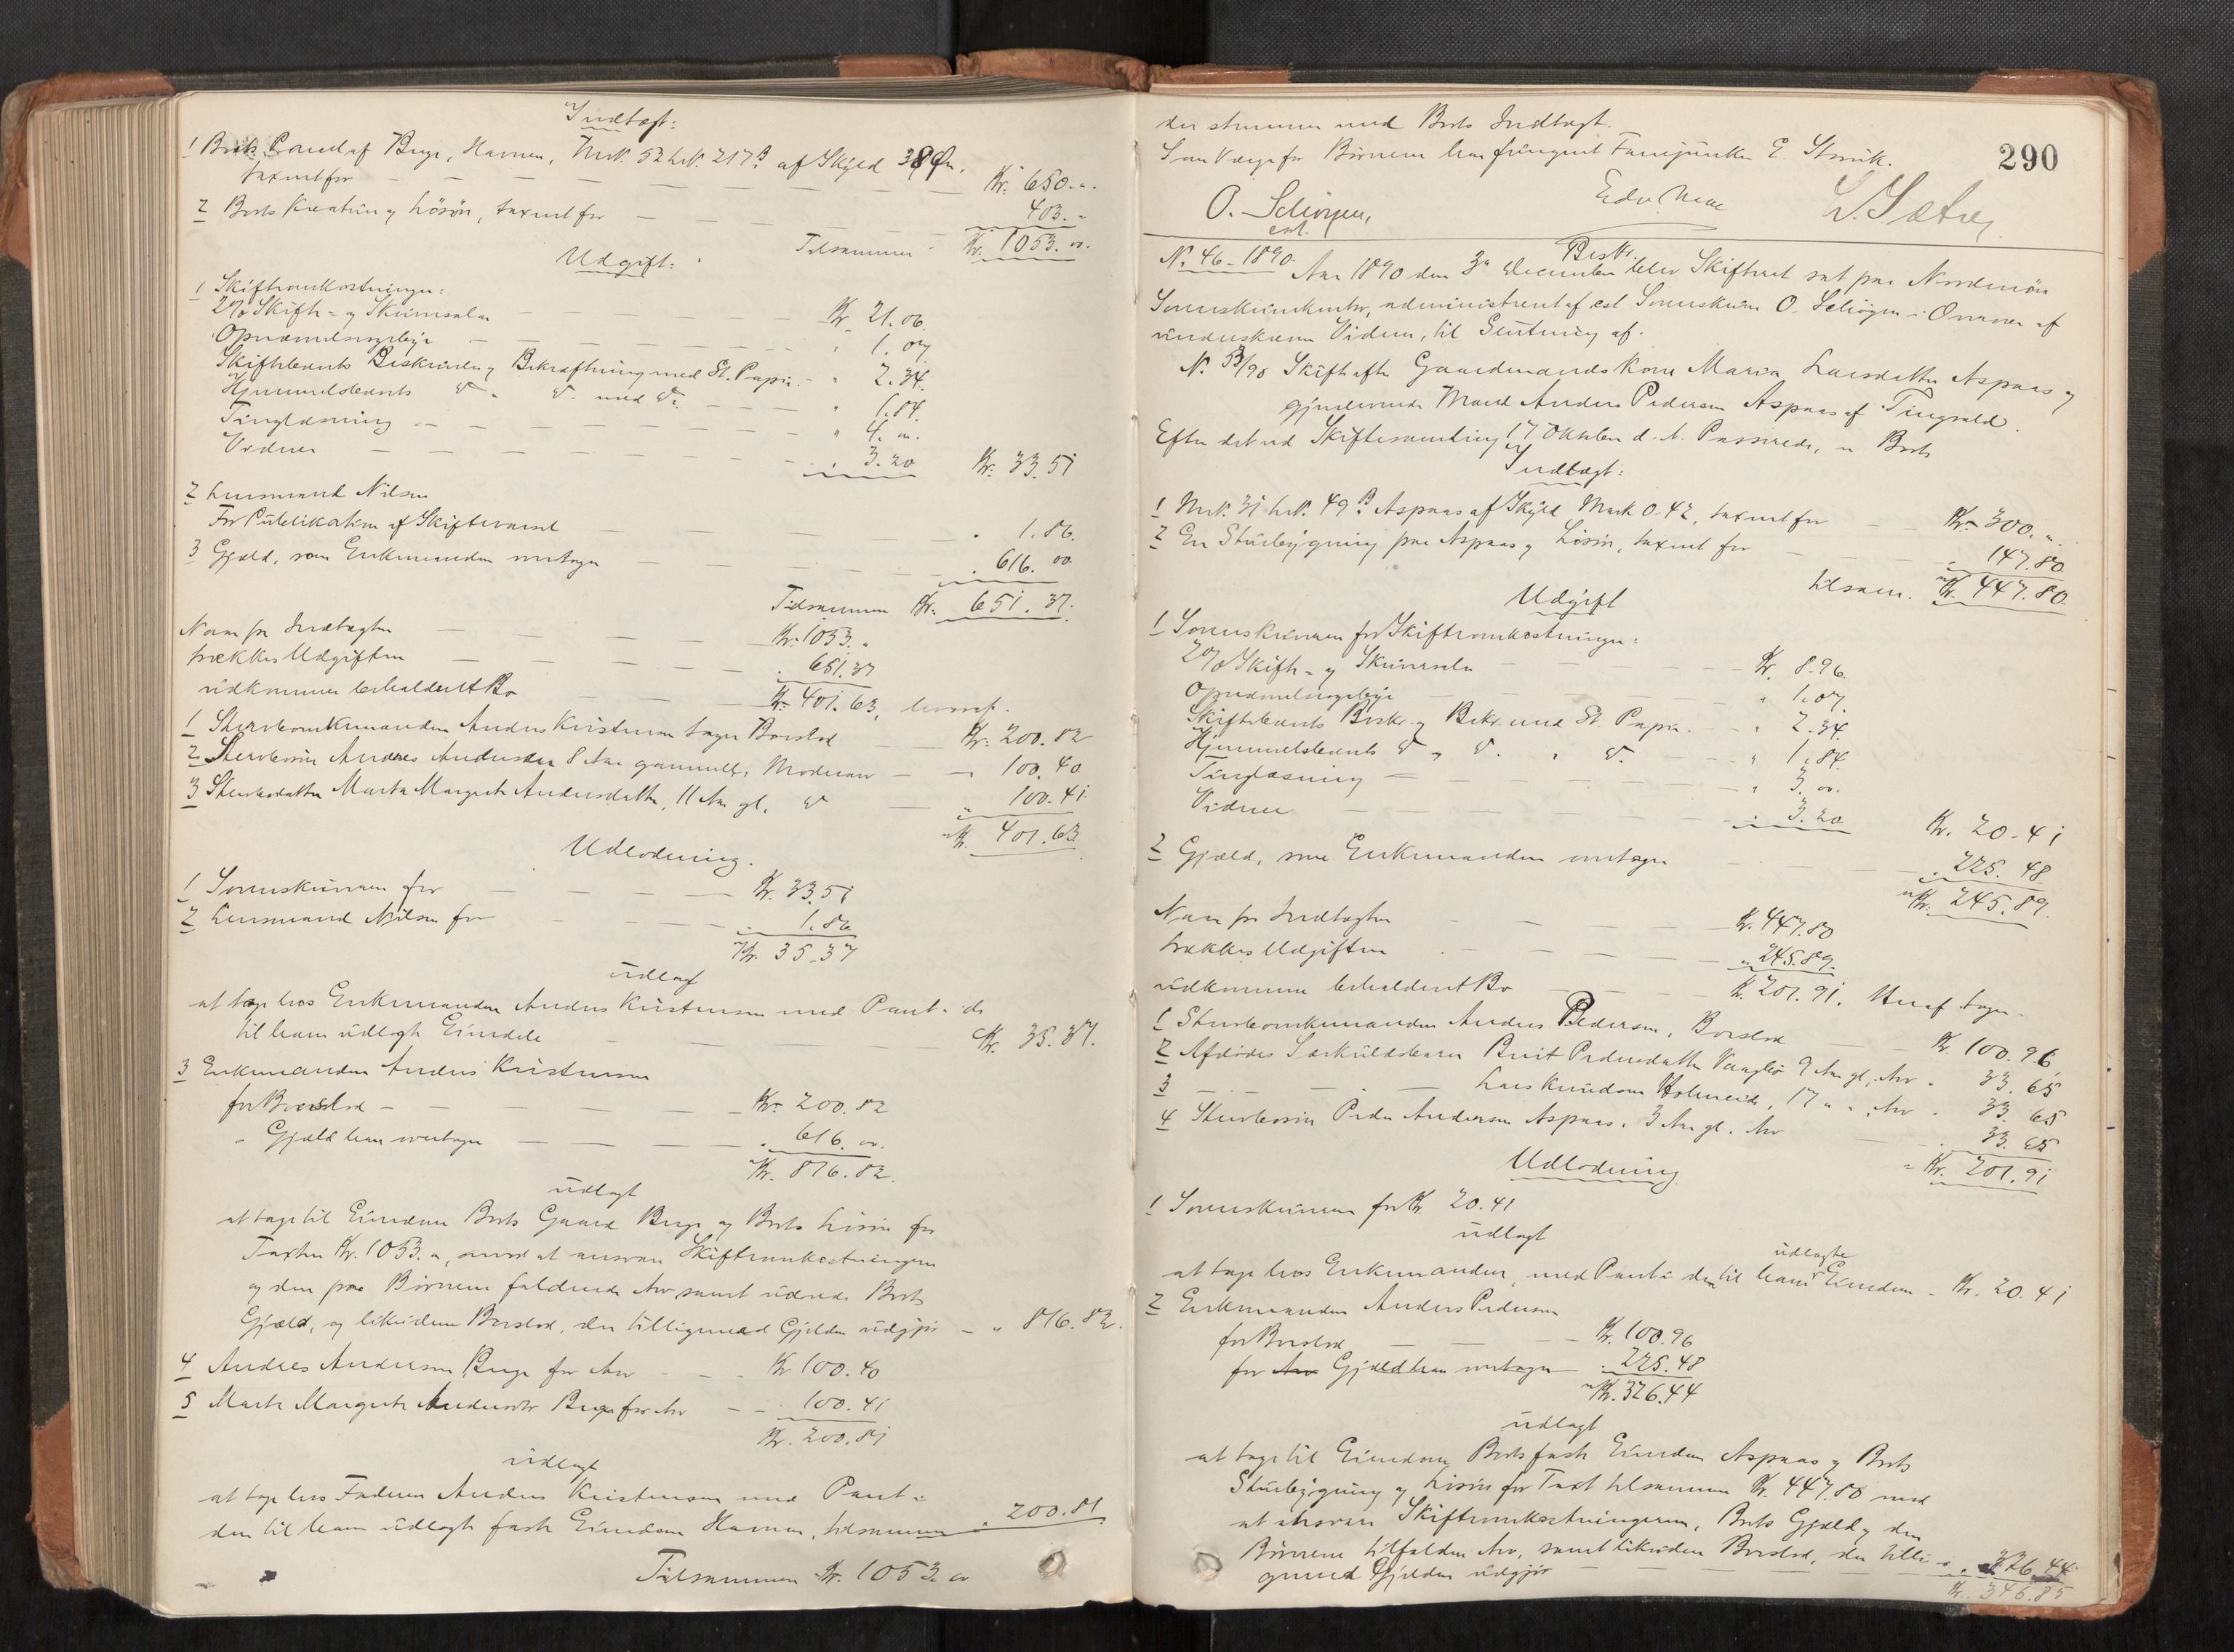 Indtægt:
1 Boets Gaard af Buge, Havnen, Mrk. 52 Lrk. 217B af Skyld 38 Øre,
taxeret for — Kr. 650. "
2 Boets Kreatur og Løsøre, taxeret for — 403. "
Tilsammen Kr. 1053. 00.
Udgift:
1 Skifteomkostninger:
2% Skifte- og Skriversalær — Kr. 21.06.
Opnævnelsesgebyr — " 1.07
Skiftebrevets Beskrivelse og Bekræftning med St. Papir — " 2.34.
Hjemmelsbrevets do " do med do — " 1.84.
Tinglæsning — " 4. 00.
Vidner — " 3.20 Kr. 33.51
2 Lensmand Nilsen
For Publikation af Skiftevarsel — " 1.86.
3 Gjæld, som Enkemanden overtager — " 616. 00
Tilsammen Kr. 651. 37.
Naar fra Indtægten — Kr. 1053. "
trækkes Udgiften — " 651.37
udkommer beholdent Bo — Kr. 401.63, hvoraf.
1 Stervboenkemanden Anders Kristensen tager Boeslod Kr. 200.82
2 Stervbosøn Andreas Andersen 8 Aar gammel, Mødrearv — " 100.40
3 Stervbodatter Marta Margrete Andersdatter, 11 Aar gl. do " 100.41
Kr. 401.63
Udlodning.
1 Sorenskriveren for — Kr. 33.51
2 Lensmand Nilsen for — " 1.86
Kr. 35.37
udlagt
at tage hos Enkemanden Anders Kristensen med Pant i de
til ham udlagte Eiendele — Kr. 35.37.
3 Enkemanden Anders Kristensen
for Boeslod — Kr. 200.82
" Gjæld han overtager — " 616. 00.
Kr. 816.82.
udlagt
at tage til Eiendom Boets Gaard Buge og Boets Løsøre for
Taxten Kr. 1053. ", mod at ansvare Skifteomkostningerne
og den paa Børnene faldende Arv samt udrede Boets
Gjæld, og likvidere Boeslod, der tilligemed Gjælden udgjør — " 816.82.
4 Andreas Andersen Buge for Arv — Kr 100.40
5 Marta Margrete Andersdtr Buge for Arv — " 100.41
Kr. 200.81
udlagt
at tage hos Faderen Anders Kristensen med Pant i
den til ham udlagte faste Eiendom Havnen, tilsammen " 200.81
Tilsammen Kr. 1053. 00
290
der stemmer med Boets Indtægt.
Som Værge for Børnene har fungeret Fanejunker E. Strøik.
O. Schiørgen,
cst.
L. Sætrej
Beskr.
No. 46-1890. Aar 1890 den 3de December blev Skifteret sat paa Nordmøre
Sorenskriverkontor, administreret af cst Sorenskriver O. Schiørgen i Overvær af
underskrevne Vidner, til Slutning af.
No. 53/90 Skifte efter Gaardmandskone Maria Larsdatter Aspaas og
gjenlevende Mand Anders Pedersen Aspaas af Tingvold.
Efter det ved Skiftesamling 17 Oktober d. A. Passerede, er Boets
Indtægt:
1 Mrk. 31 Lrk. 49B Aspaas af Skyld Mark 0.42, taxeret for — Kr. 300. "
2 En Stuebygning paa Aspaas og Løsøre, taxeret for — " 147.80
tilsam. Kr. 447.80.
Udgift
1 Sorenskriveren for Skifteomkostninger:
2% Skifte- og Skriversalær — Kr. 8.96.
Opnævnelsesgebyr — " 1.07.
Skiftebrevets Beskr. og Bekr. med St. Papir. — " 2.34.
Hjemmelsbrevets do " do. " do. " 1.84.
Tinglæsning — " 3. 00.
Vidner — " 3.20 Kr. 20.41
2 Gjæld, som Enkemanden overtager — " 225. 48
Kr. 245.89.
Naar fra Indtægten — Kr. 447.80
trækkes Udgiften — " 245.89.
udkommer beholdent Bo — Kr. 201.91. Heraf tager
1 Stervboenkemanden Anders Pedersen, Boeslod — Kr. 100.96
2 Afdødes Særkuldsbarn Berit Pedersdatter Vaagbø 9 Aar gl, Arv " 33. 65
3 — " — Lars Knudsen Holmeide, 17 " " , Arv " 33. 65
4 Stervbosøn Peder Andersen Aspaas, 3 Aar gl. Arv — " 33. 65
Kr. 201.91
Udlodning
1 Sorenskriveren for Kr. 20.41
udlagt
at tage hos Enkemanden, med Pant i den til ham udlagte Eiendom — Kr. 20.41
2 Enkemanden Anders Pedersen
for Boeslod — Kr. 100.96
for Arv Gjæld han overtager — " 225.48
Kr. 326.44
udlagt
at tage til Eiendom Boets faste Eiendom Aspaas og Boets
Stuebygning og Løsøre for Taxt tilsammen Kr. 447.80 mod
at ansvare Skifteomkostningerne, Boets Gjæld og den
Børnene tilfaldne Arv, samt likvidere Boeslod, der tilli-
gemed Gjælden udgjør — " 326.44
Kr. 346.85